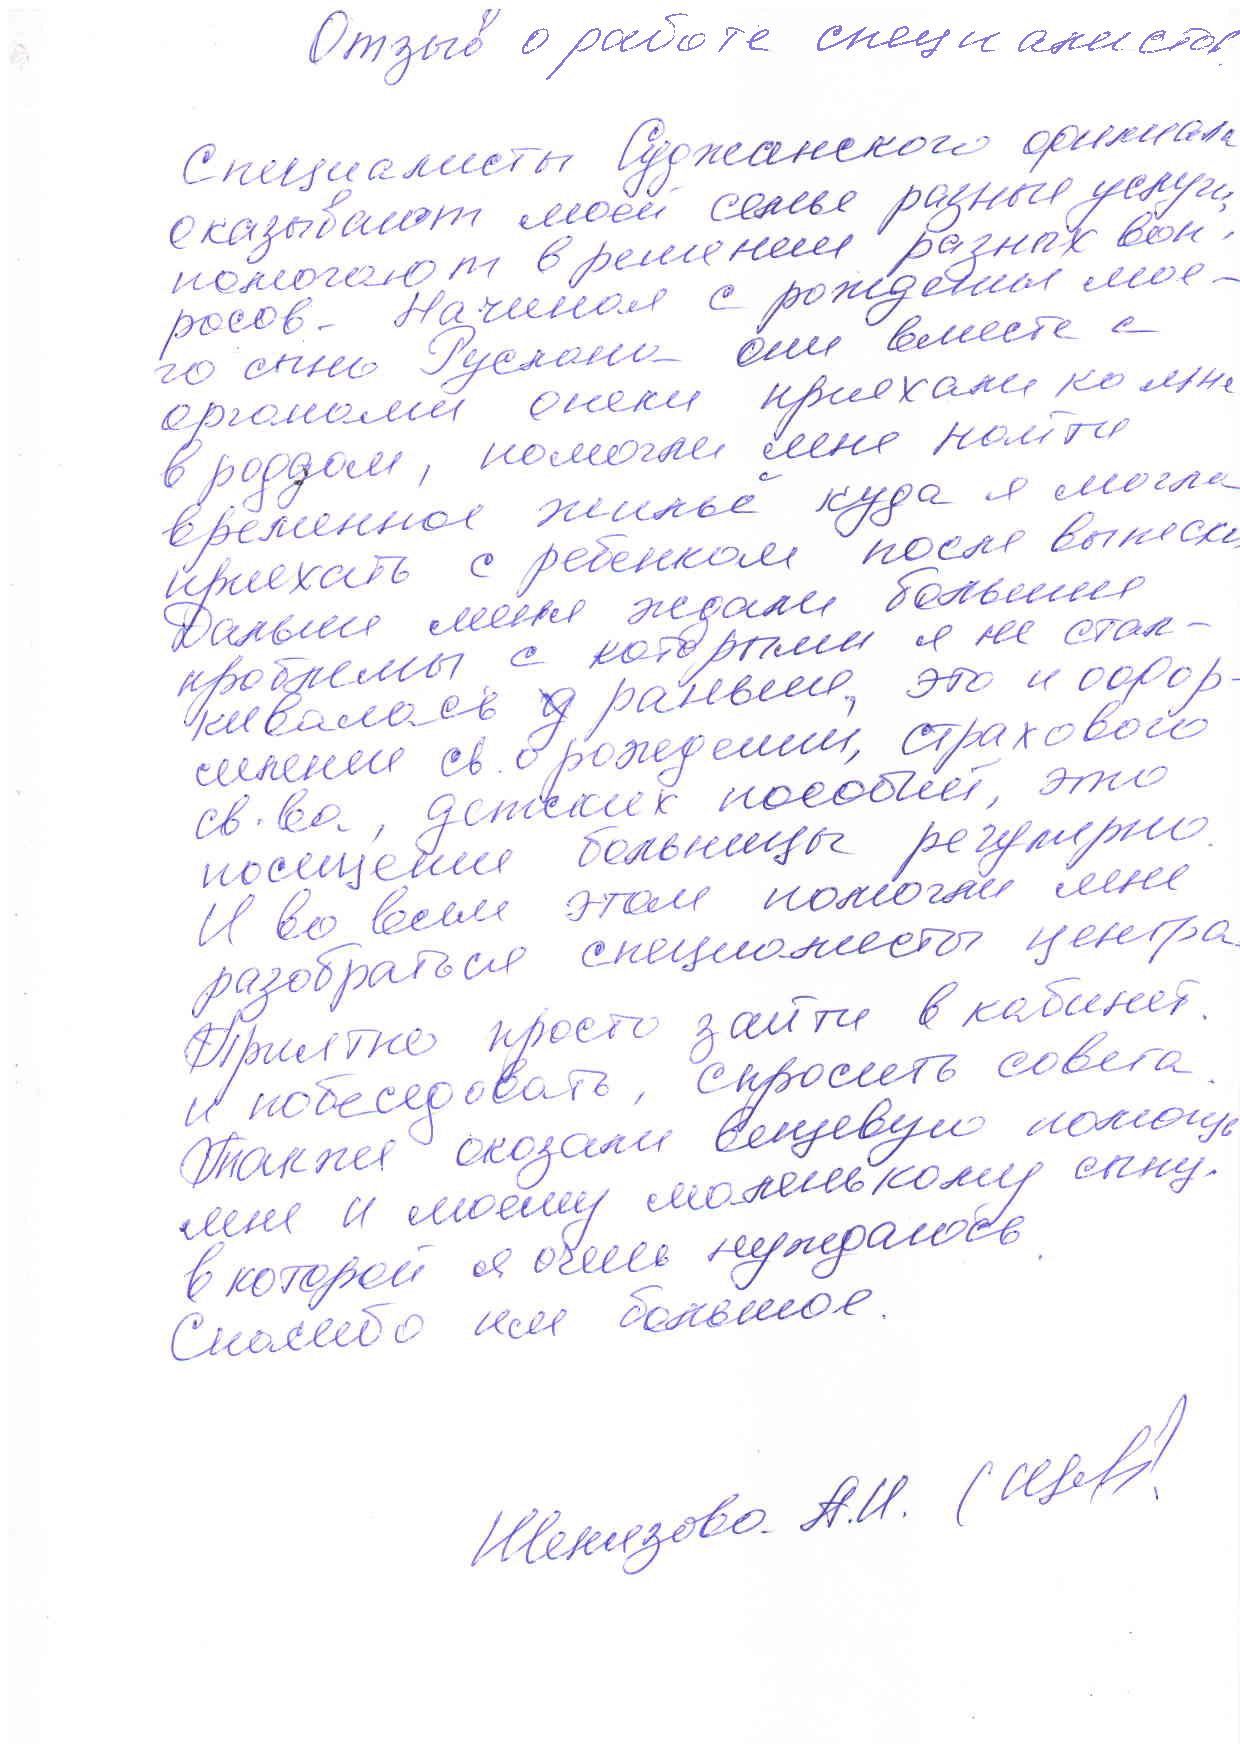 Отзыв о работе специалистов.
Специалисты Суджанского филиала
оказывают моей семье разные услуги,
помогают в решении разных воп-
росов. Начиная с рождения мое-
го сына Руслана они вместе с
органами опеки приехали ко мне
в роддом, помогли мне найти
временное жильё куда я могла
приехать с ребенком после выписки.
Дальше меня ждали большие
проблемы с которыми я не стал-
кивалась раньше, это и офор-
мление св. о рождении, страхового
св-ва, детских пособий, это
посещение больницы регулярно.
И во всем этом помогли мне
разобраться специалисты центра.
Приятно просто зайти в кабинет.
и побеседовать, спросить совета.
Также оказали вещевую помощь
мне и моему маленькому сыну.
в которой я очень нуждаюсь.
Спасибо им большое.
А.И.